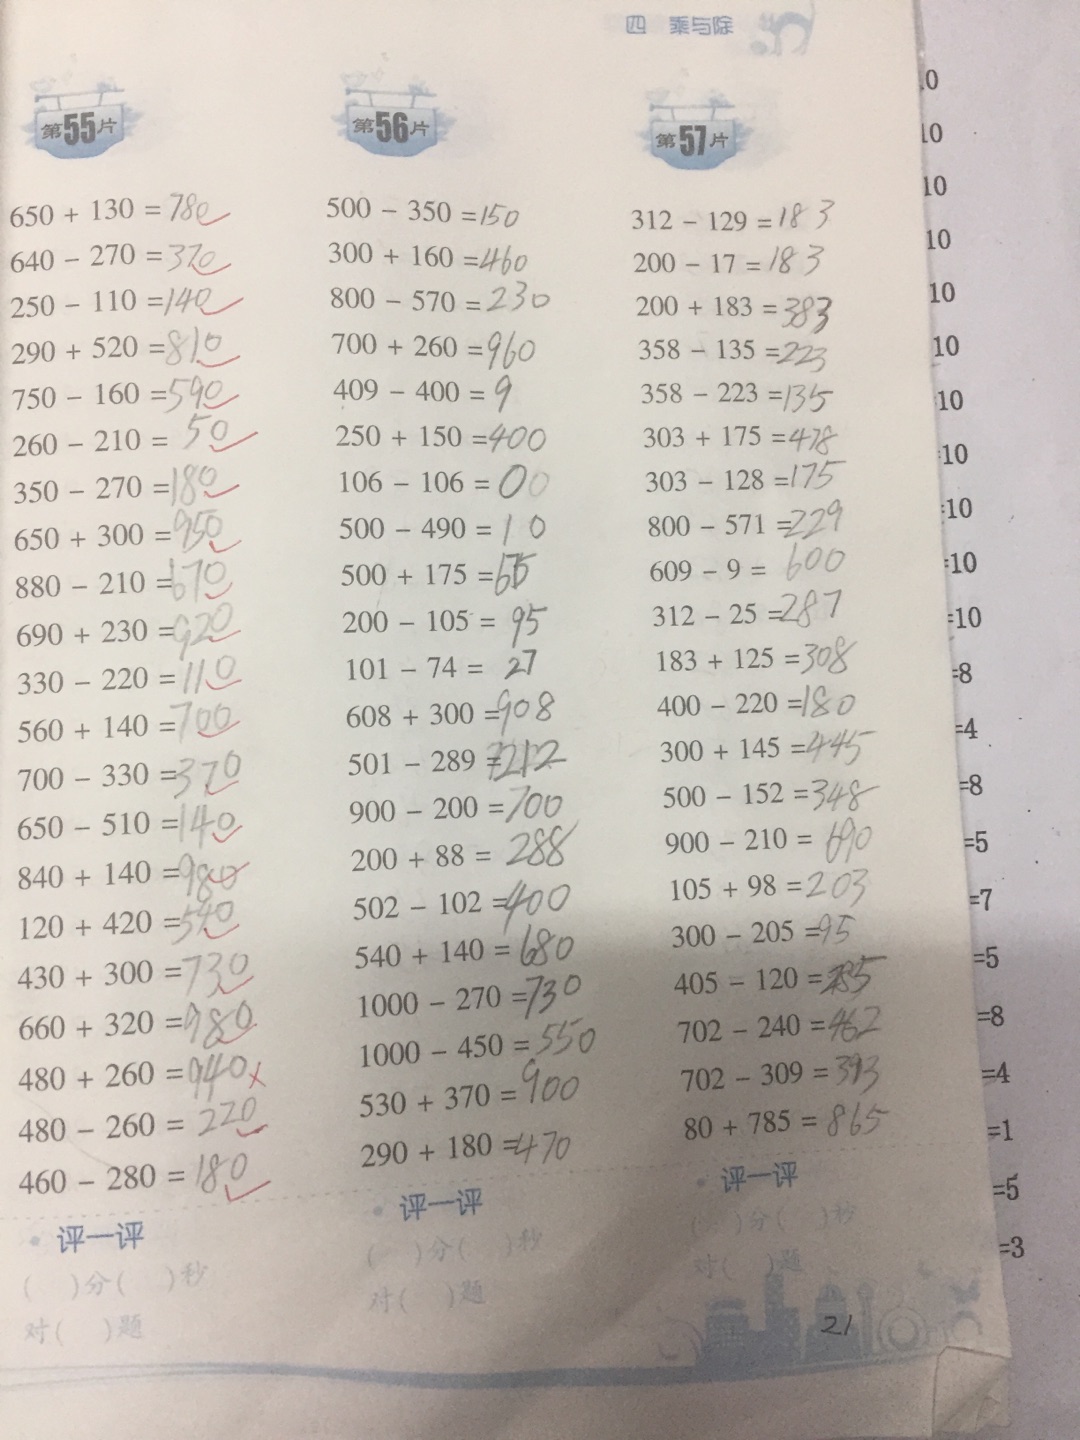 四 乘与除
第55片
650 + 130 = 780
640 - 270 = 370
250 - 110 = 140
290 + 520 = 810
750 - 160 = 590
260 - 210 = 50
350 - 270 = 180
650 + 300 = 950
880 - 210 = 670
690 + 230 = 920
330 - 220 = 110
560 + 140 = 700
700 - 330 = 370
650 - 510 = 140
840 + 140 = 980
120 + 420 = 540
430 + 300 = 730
660 + 320 = 980
480 + 260 = 940
480 - 260 = 220
460 - 280 = 180
评一评
( )分( )秒
对( )题
第56片
500 - 350 = 150
300 + 160 = 460
800 - 570 = 230
700 + 260 = 960
409 - 400 = 9
250 + 150 = 400
106 - 106 = 00
500 - 490 = 10
500 + 175 =
200 - 105 = 95
101 - 74 = 27
608 + 300 = 908
501 - 289 = 212
900 - 200 = 700
200 + 88 = 288
502 - 102 = 400
540 + 140 = 680
1000 - 270 = 730
1000 - 450 = 550
530 + 370 = 900
290 + 180 = 470
评一评
( )分( )秒
对( )题
第57片
312 - 129 = 183
200 - 17 = 183
200 + 183 = 383
358 - 135 = 223
358 - 223 = 135
303 + 175 = 478
303 - 128 = 175
800 - 571 = 229
609 - 9 = 600
312 - 25 = 287
183 + 125 = 308
400 - 220 = 180
300 + 145 = 445
500 - 152 = 348
900 - 210 = 690
105 + 98 = 203
300 - 205 = 95
405 - 120 = 285
702 - 240 = 462
702 - 309 = 393
80 + 785 = 865
评一评
( )分( )秒
对( )题
21
10
10
10
10
10
10
10
=10
=10
=10
=8
=4
=8
=5
=7
=5
=8
=4
=1
=5
=3